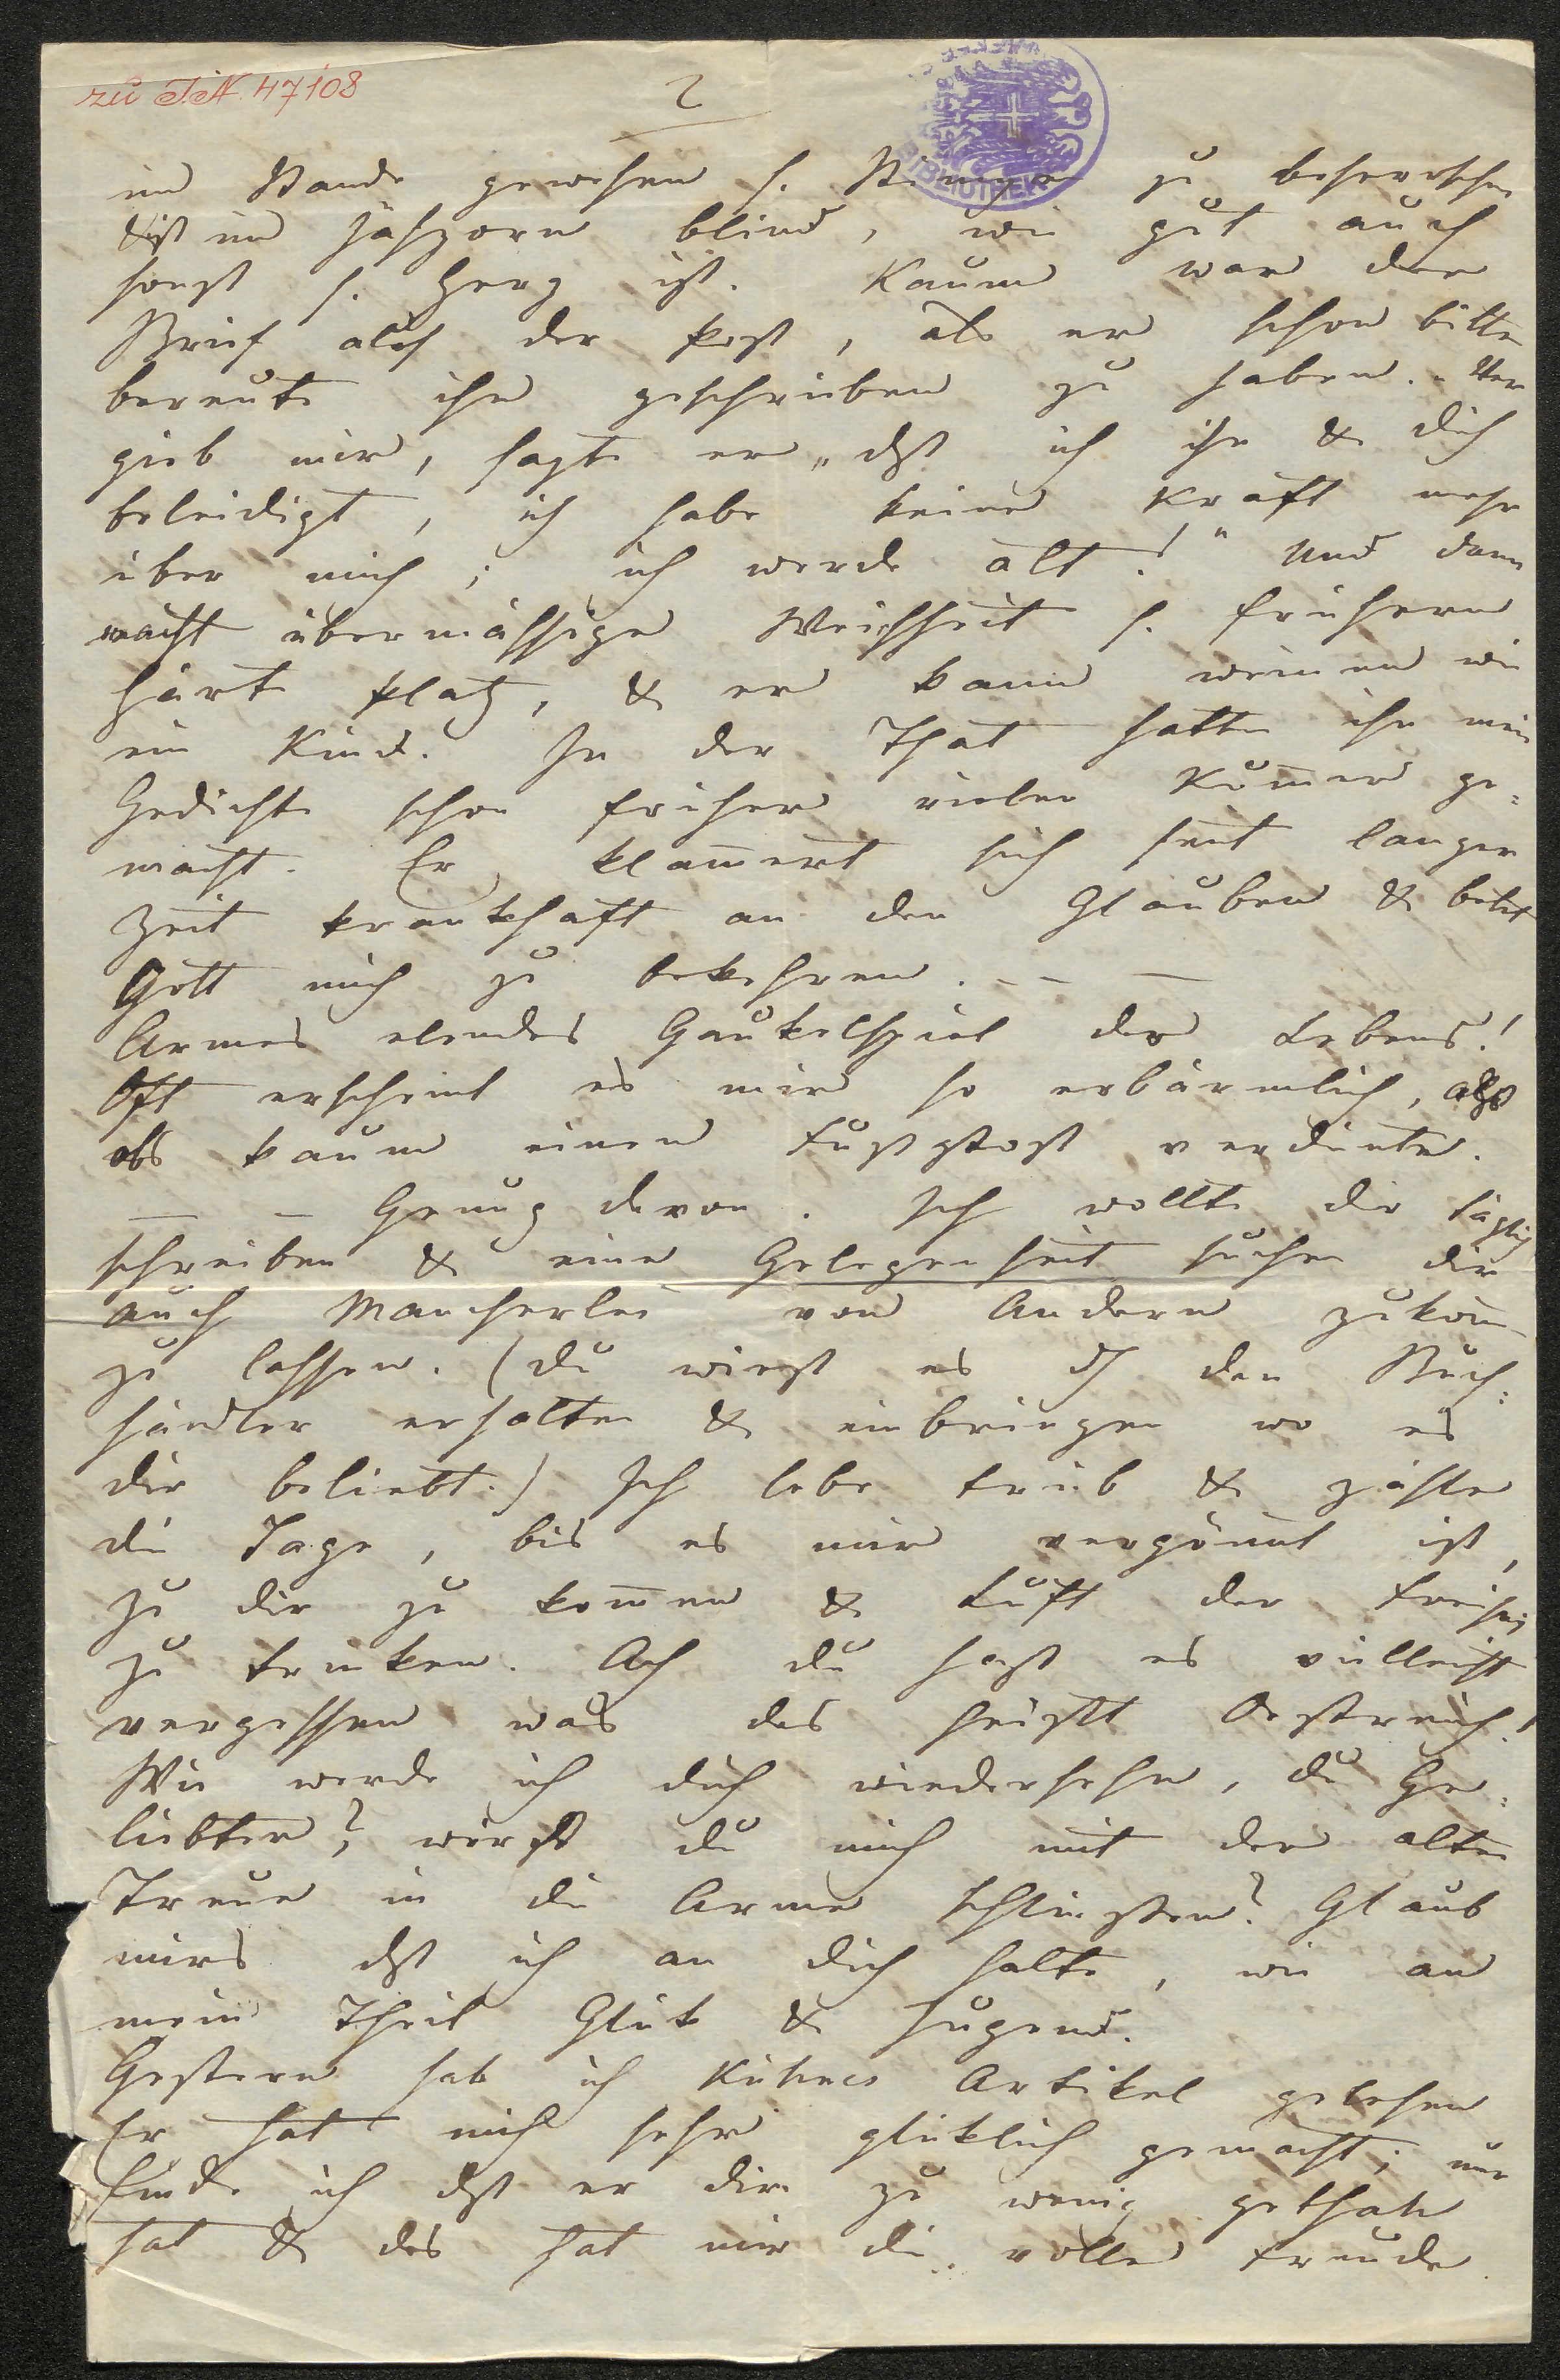 zu I.N. 47108
2
BIBLIOTHEK
im Stande gewesen s. Stimmung zu beherrschen
& ist im Jähzorn blind, wie gut auch
sonst s. Herz ist. Kaum war der
Brief auf der Post, als er schon bitter
bereute ihn geschrieben zu haben. „Ver
gieb mir, sagte er „dß ich ihn & dich
beleidigt, ich habe keine Kraft mehr
über mich; ich werde alt!" Und dann
macht übermässige Weichheit s. frühern
Härte Platz, & er kann weinen wie
ein Kind. In der That hatten ihm meine
Gedichte schon früher vielen Kum̅er ge=
macht. Er klam̅ert sich seit langer
Zeit krankhaft an den Glauben & bittet
Gott mich zu bekehren. — —
Armes elendes Gaukelspiel des Lebens!
Oft erscheint es mir so erbärmlich, als
obs kaum einen Fußstoß verdiente.
— — Genug davon. Ich wollte dir täglich
schreiben & eine Gelegenheit suchen dir
auch Mancherlei von Andern zukom̅
zu lassen. (Du wirst es d/ den Buch=
händler erhalten & einbringen wo es
dir beliebt.) Ich lebe trüb & zähle
die Tage, bis es mir vergönnt ist,
zu dir zu kom̅en & Luft der Freiheit
zu trinken. Ach du hast es vielleicht
vergessen was das heißt Oestreich!
Wie werde ich dich wiedersehn, du Ge=
liebter? wirst du mich mit der alten
Treue in die Arme schließen? Glaub
mirs dß ich an dich halte, wie an
mein Theil Glück & Jugend.
Gestern hab ich Kühnes Artikel gelesen
Er hat mich sehr glücklich gemacht; nur
finde ich dß er dir zu wenig gethan
hat & das hat mir die volle Freude